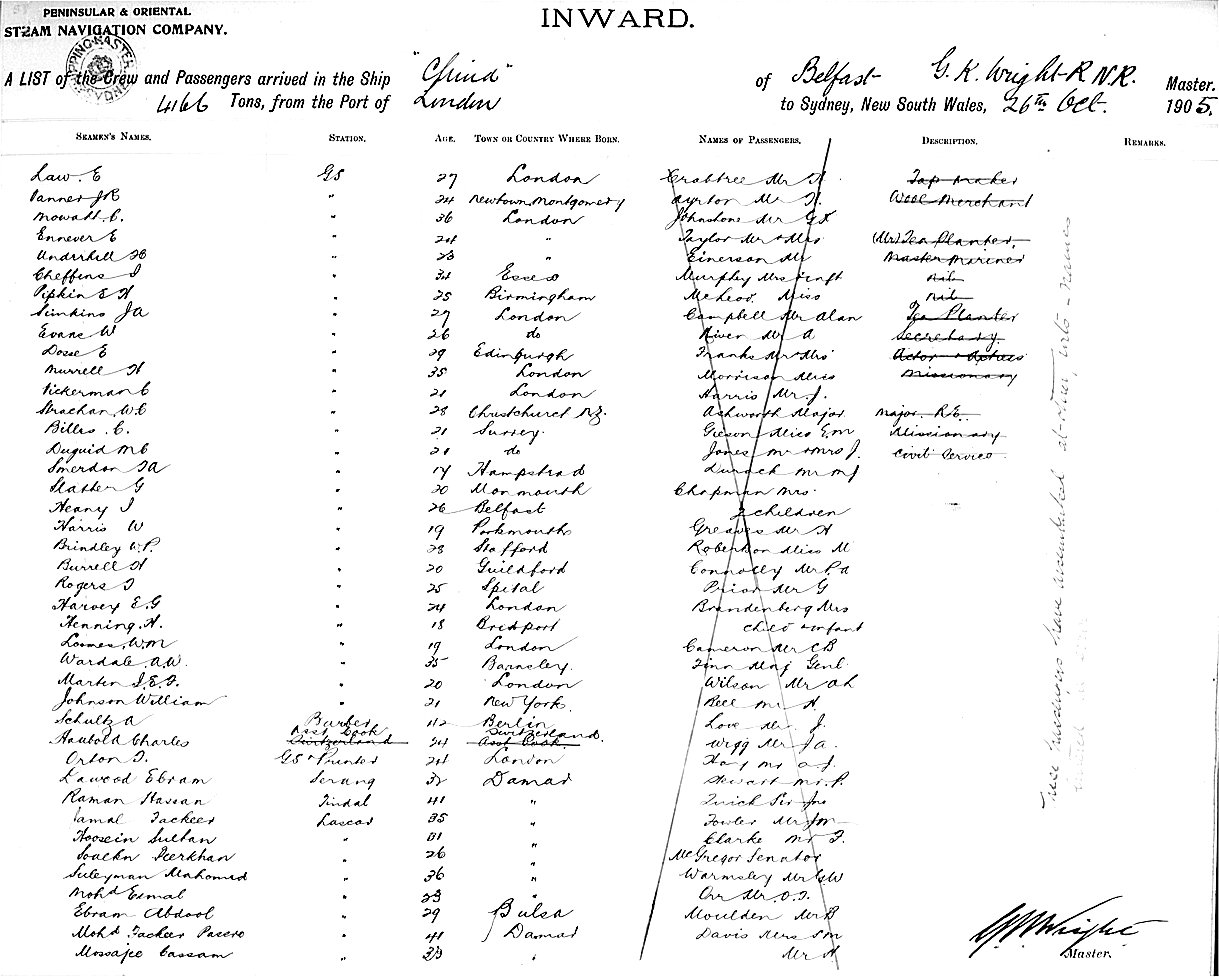 PENINSULAR & ORIENTAL
STEAM NAVIGATION COMPANY.
INWARD.
A LIST of the Crew and Passengers arrived in the Ship "China" of Belfast G. K. Wright R.N.R. Master.
Tons, from the Port of London to Sydney, New South Wales, 26th Oct. 1905.
SEAMEN'S NAMES. STATION. AGE. TOWN OR COUNTRY WHERE BORN. NAMES OF PASSENGERS. DESCRIPTION. REMARKS.
Law. E GS 27 London Crabtree Mr
Vanner JR " 24 Newtown Montgomery Ayrton Mr Wool Merchant
Mowatt C. " 36 London Johnstone Mr
Ennever E " 24 " Taylor Mr & Mrs (Mr) Tea Planter,
Underhill " 23 " Einerson Mr Master Mariner
Cheffins J " 34 Essex Murphy Mrs nil
Pipkin E H " 25 Birmingham McLeod Miss nil
Simkins JA " 27 London Campbell Mr Alan Tea Planter
Evans W " 26 do Niven Mr A Secretary
Dosse E " 29 Edinburgh Franks Mr & Mrs Actor & Actress
Murrell H " 35 London Morrison Miss Missionary
Vickerman C " 21 London Harris Mr J.
Strachan W.C " 28 Christchurch N.Z. Ashworth Major Major R.E.
Billes C. " 21 Surrey Miss E.M Missionary
Duguid M C " 21 do Jones Mr & Mrs J. Civil Service
Smerdon A " 17 Hampstead Durack Mr M J
Slatter G " 20 Monmouth Chapman Mrs.
Heany J " 26 Belfast 2 children
Harris W " 19 Portsmouth Greaves Mr H
Brindley W.P. " 28 Stafford Robertson Miss M
Burrell H " 20 Guildford Connolly Mr P.A
Rogers J " 25 Spital Prior Mr G
Harvey E.G " 24 London Brandenberg Mrs
Henning. H. " 18 Bridport child & infant
Loomes W.M " 19 London Cameron Mr C B
Wardale A.W. " 35 Barnsley. Finn Maj Genl
Martin J.E.F. " 20 London Wilson Mr
Johnson William " 21 New York. Bell Mr H.
Schultz A Barber 42 Berlin Love Mr J.
Haubold Charles Asst Cook Switzerland 24 Switzerland. Asst Cook Wigg Mr J a.
Orton J. GS & Printer 24 London Hay Mr
Dawood Ebram Serang 32 Damar Stewart Mr P.
Raman Hassan Tindal 41 " Quick Sir Jno
Jamal Fackeer Lascar 35 " Fowler Mr
Hoosein Sultan " 31 " Clarke Mr F.
Peerkhan " 26 " McGregor Senator
Suleyman Mahomed " 36 " Warmsley Mr G W
Mohd Esmal " 23 " Orr Mr O.J.
Ebram Abdool " 29 Bulsa Moulden Mr B
Mohd Fackeer " 41 Damar Davis Mrs
Cassam " 33 " Mr A
These passengers have
G K Wright
Master.